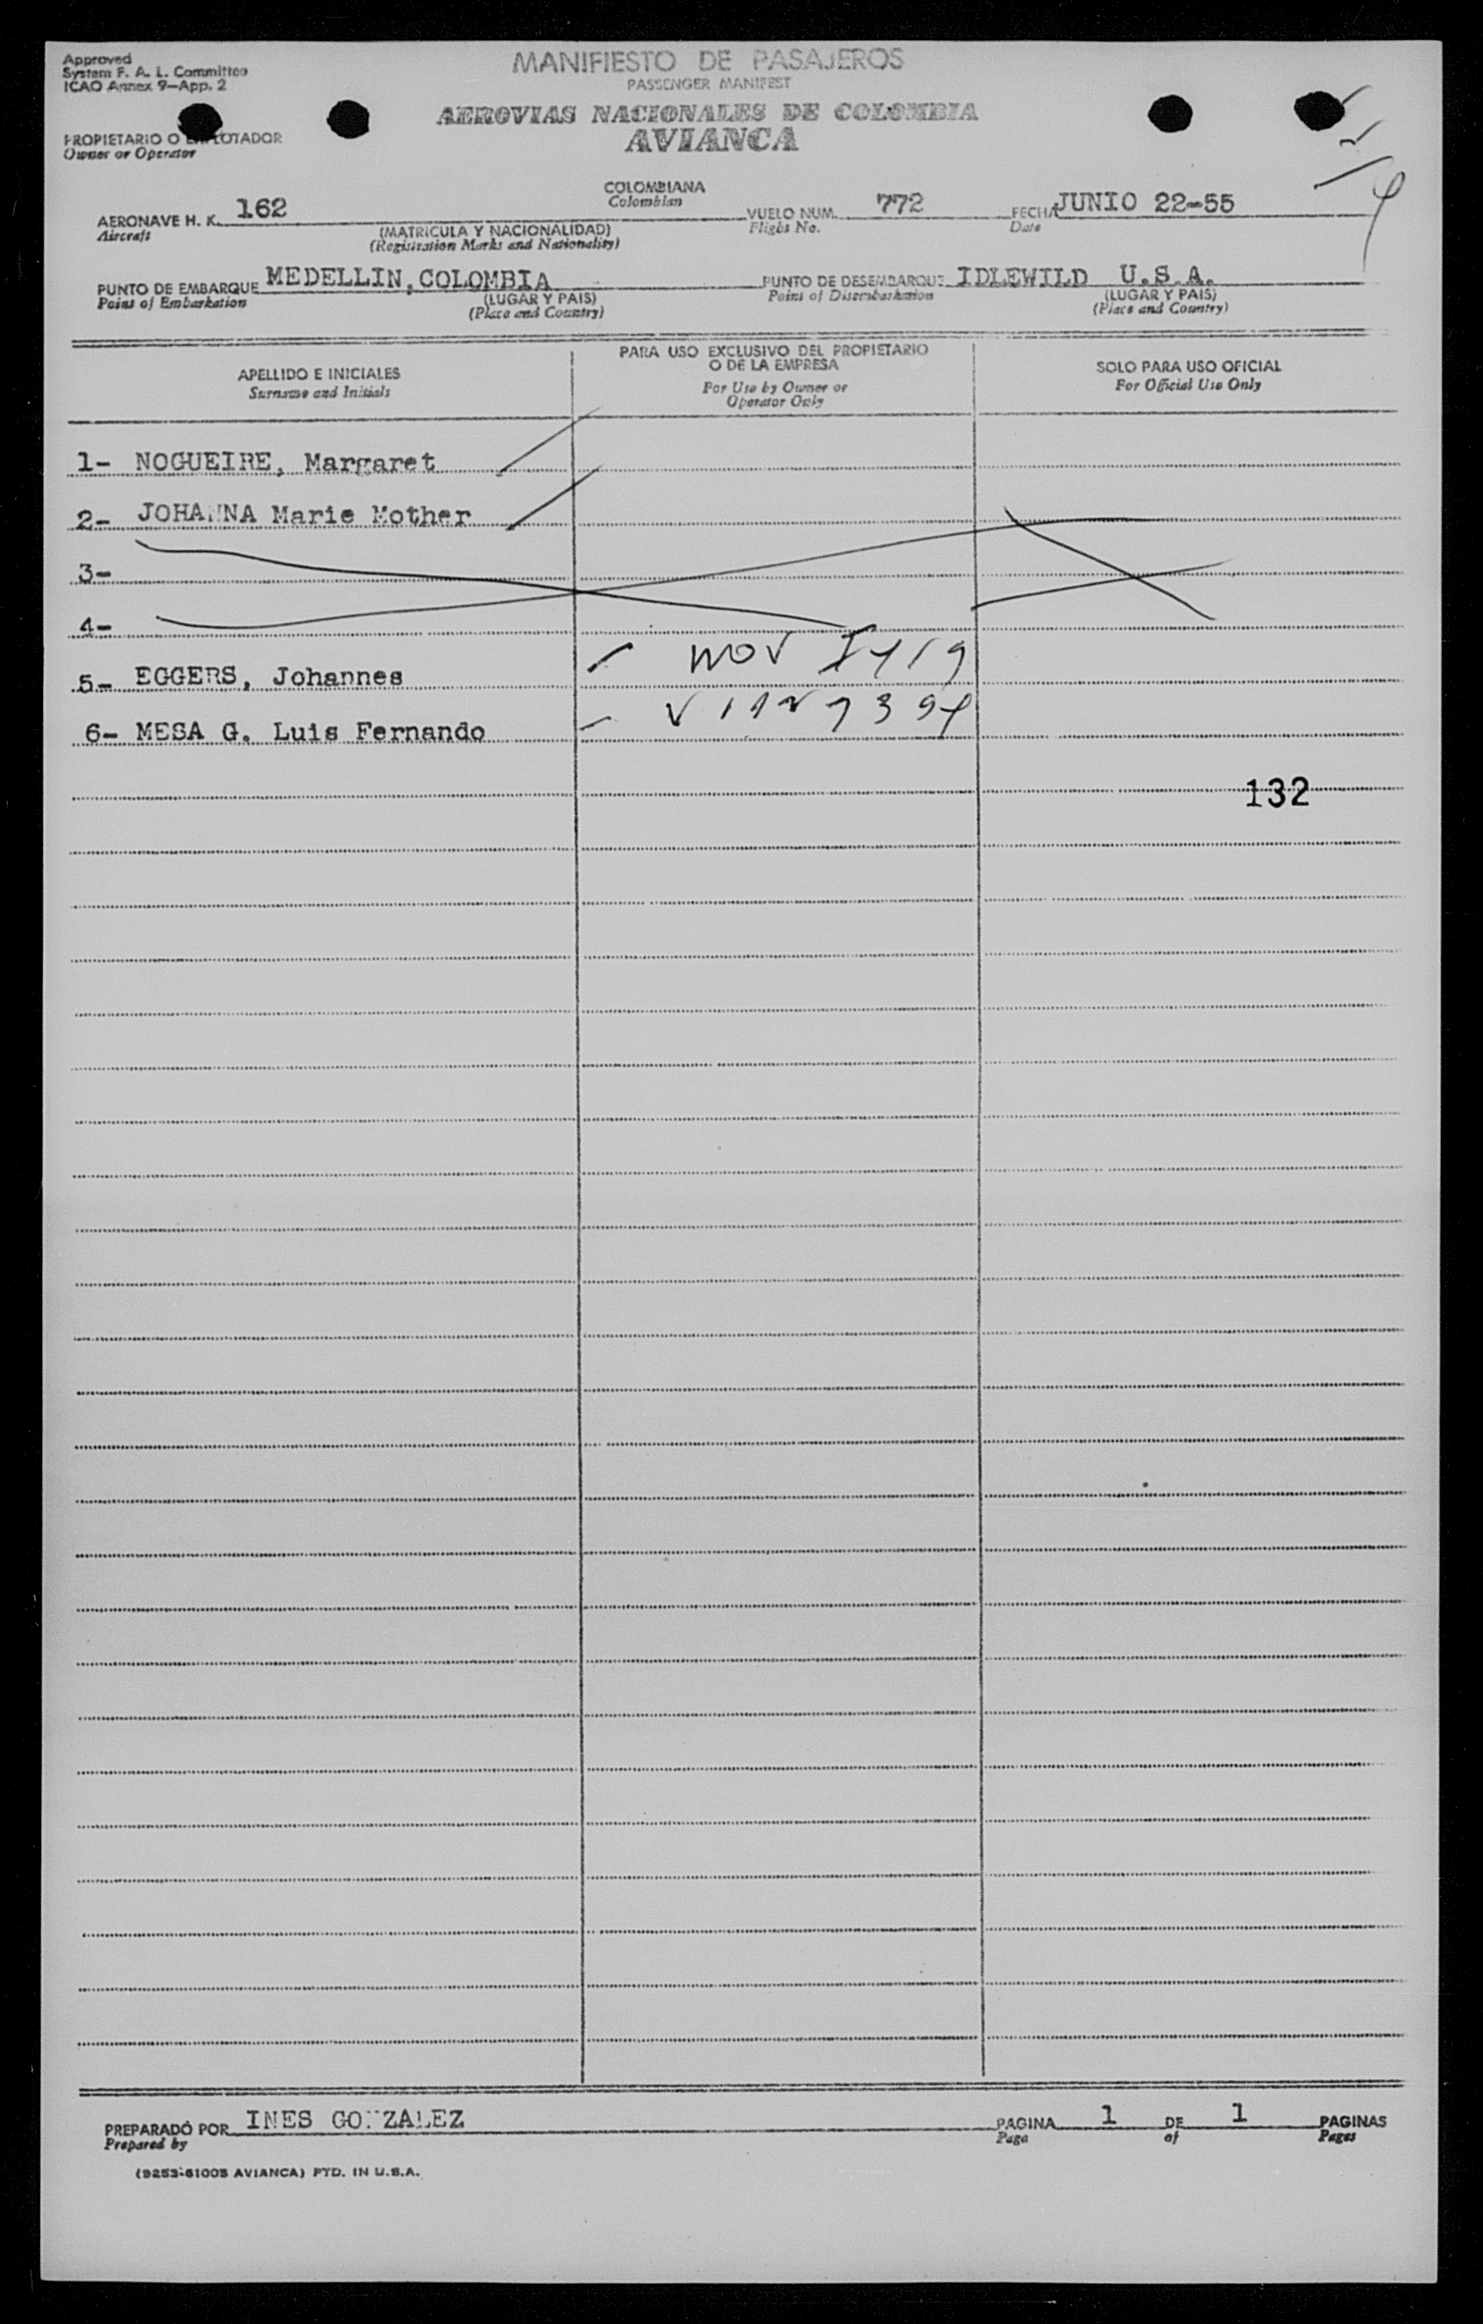 Approved
System F. A. L. Committee
ICAO Annex 9—App. 2
MANIFIESTO DE PASAJEROS
PASSENGER MANIFEST
AEROVIAS NACIONALES DE COLOMBIA
AVIANCA
PROPIETARIO O EXPLOTADOR
Owner or Operator
COLOMBIANA
Colombian
AERONAVE H. K. 162 VUELO NUM. 772 FECHA JUNIO 22-55
Aircraft (MATRICULA Y NACIONALIDAD) Flight No. Date
(Registration Marks and Nationality)
PUNTO DE EMBARQUE MEDELLIN, COLOMBIA PUNTO DE DESEMBARQUE IDLEWILD U.S.A.
Point of Embarkation (LUGAR Y PAIS) Point of Disembarkation (LUGAR Y PAIS)
(Place and Country) (Place and Country)
APELLIDO E INICIALES
Surname and Initials
PARA USO EXCLUSIVO DEL PROPIETARIO
O DE LA EMPRESA
For Use by Owner or
Operator Only
SOLO PARA USO OFICIAL
For Official Use Only
1- NOGUEIRE, Margaret
2- JOHANNA Marie Mother
3-
4-
5- EGGERS, Johannes
6- MESA G. Luis Fernando
132
PREPARADÓ POR INES GONZALEZ PAGINA 1 DE 1 PAGINAS
Prepared by Page of Pages
(9253-61005 AVIANCA) PTD. IN U.S.A.